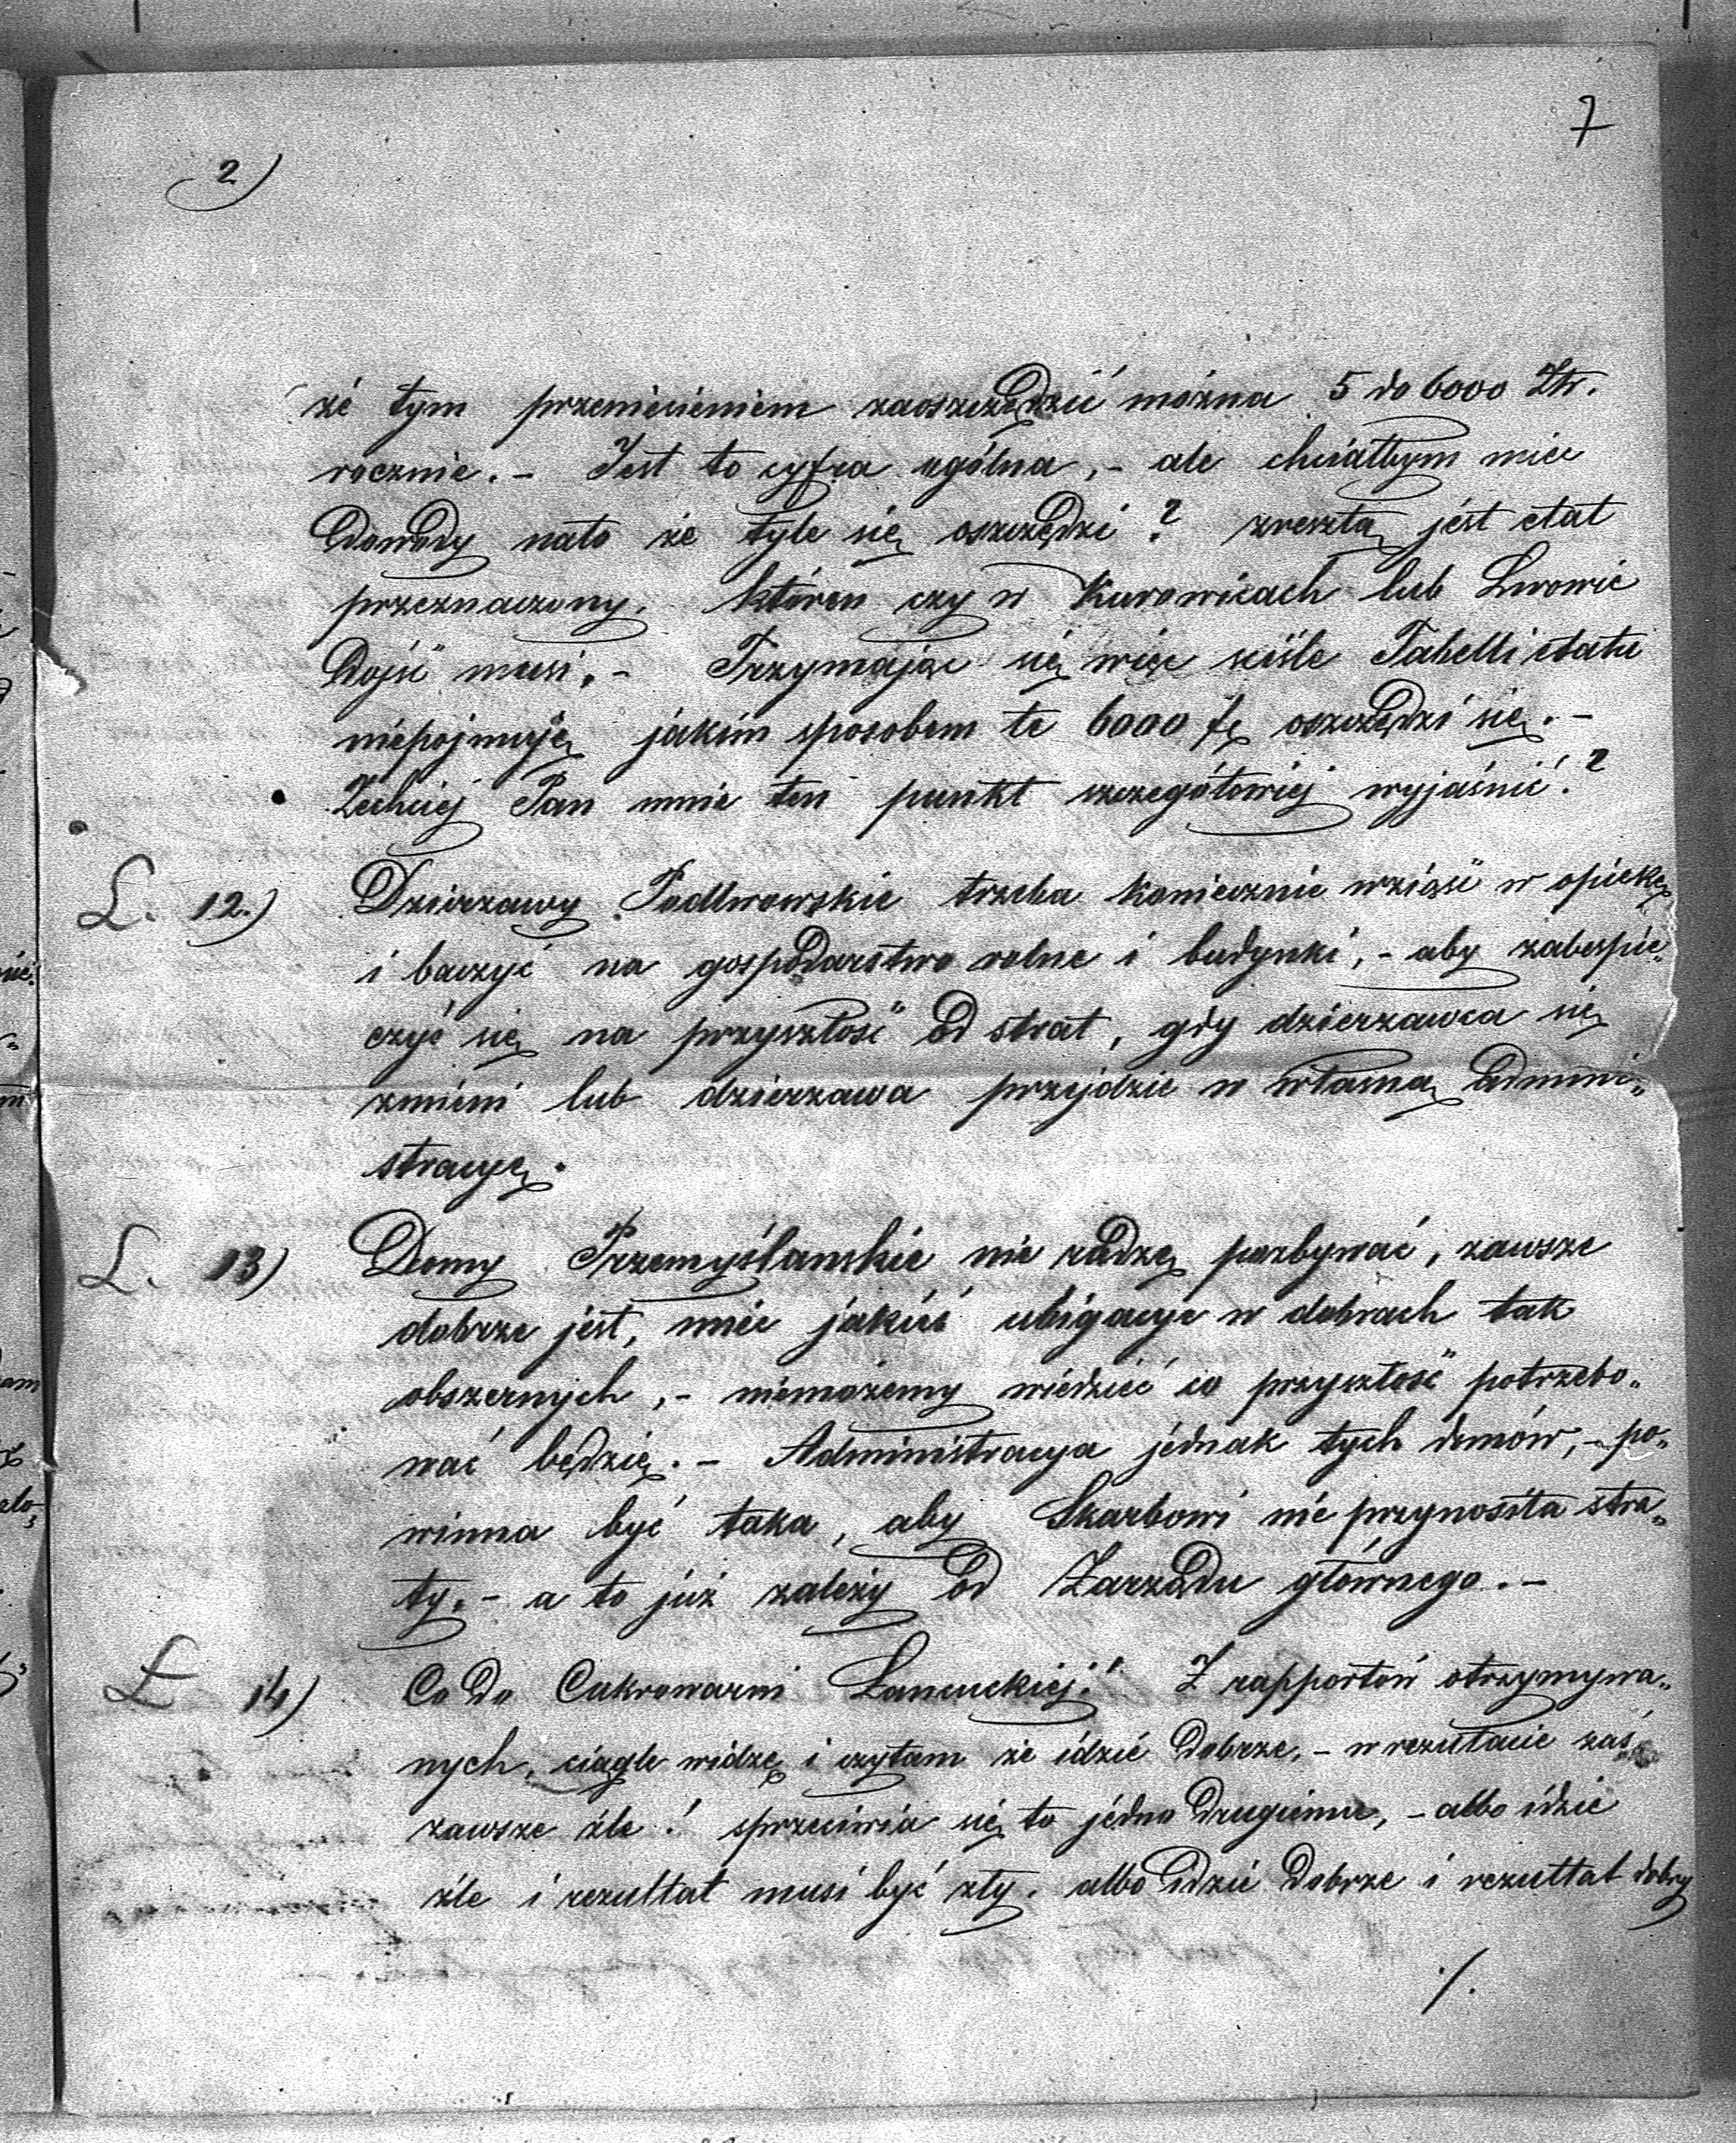 7
2)
że tym przeniesieniem zaoszczędzić można 5 do 6000 Złr.
rocznie. – Jest to cyfra ogólna, – ale chciałbym miec
dowody nato że tyle się oszczędzi? zresztą jest etat
przeznaczony, któren czy w Kurowicach lub Lwowie
dojść musi. – Trzymając się więc ściśle Tabelli etatu
niepojmuję jakim sposobem te 6000 f oszczędzi się. –
Zechciej Pan mnie ten punkt szczegółowiej wyjaśnić?
L. 12.) Dzierzawy Podlwowskie trzeba koniecznie wziąść w opiekę
i baczyć na gospodarstwo rolne i budynki, – aby zabespie„
czyć się na przyszłość od strat, gdy dzierzawca się
zmieni lub dzierzawa przejdzie w własną admini„
stracyę.
L. 13) Domy Przemyślanskie nie radzę pozbywać, zawsze
dobrze jest, miec jakieś ubigacye w dobrach tak
obszernych, – niemożemy wiedzieć co przyszłość potrzebo„
wać będzię. – Administracya jednak tych domów, – po„
winna być taka, aby Skarbowi nie przynosiła stra„
ty. – a to już zależy od Zarządu głównego. –
Ł 14) Co do Cukrowarni Łancuckiej! Z rapportów otrzymywa„
nych, ciągle widzę i czytam że idzie dobrze, – w rezultacie zaś
zawsze źle! sprzeciwia się to jedno drugiemu, – albo idzie
źle i rezultat musi być zły, albo idzie dobrze i rezultat dobry
./.